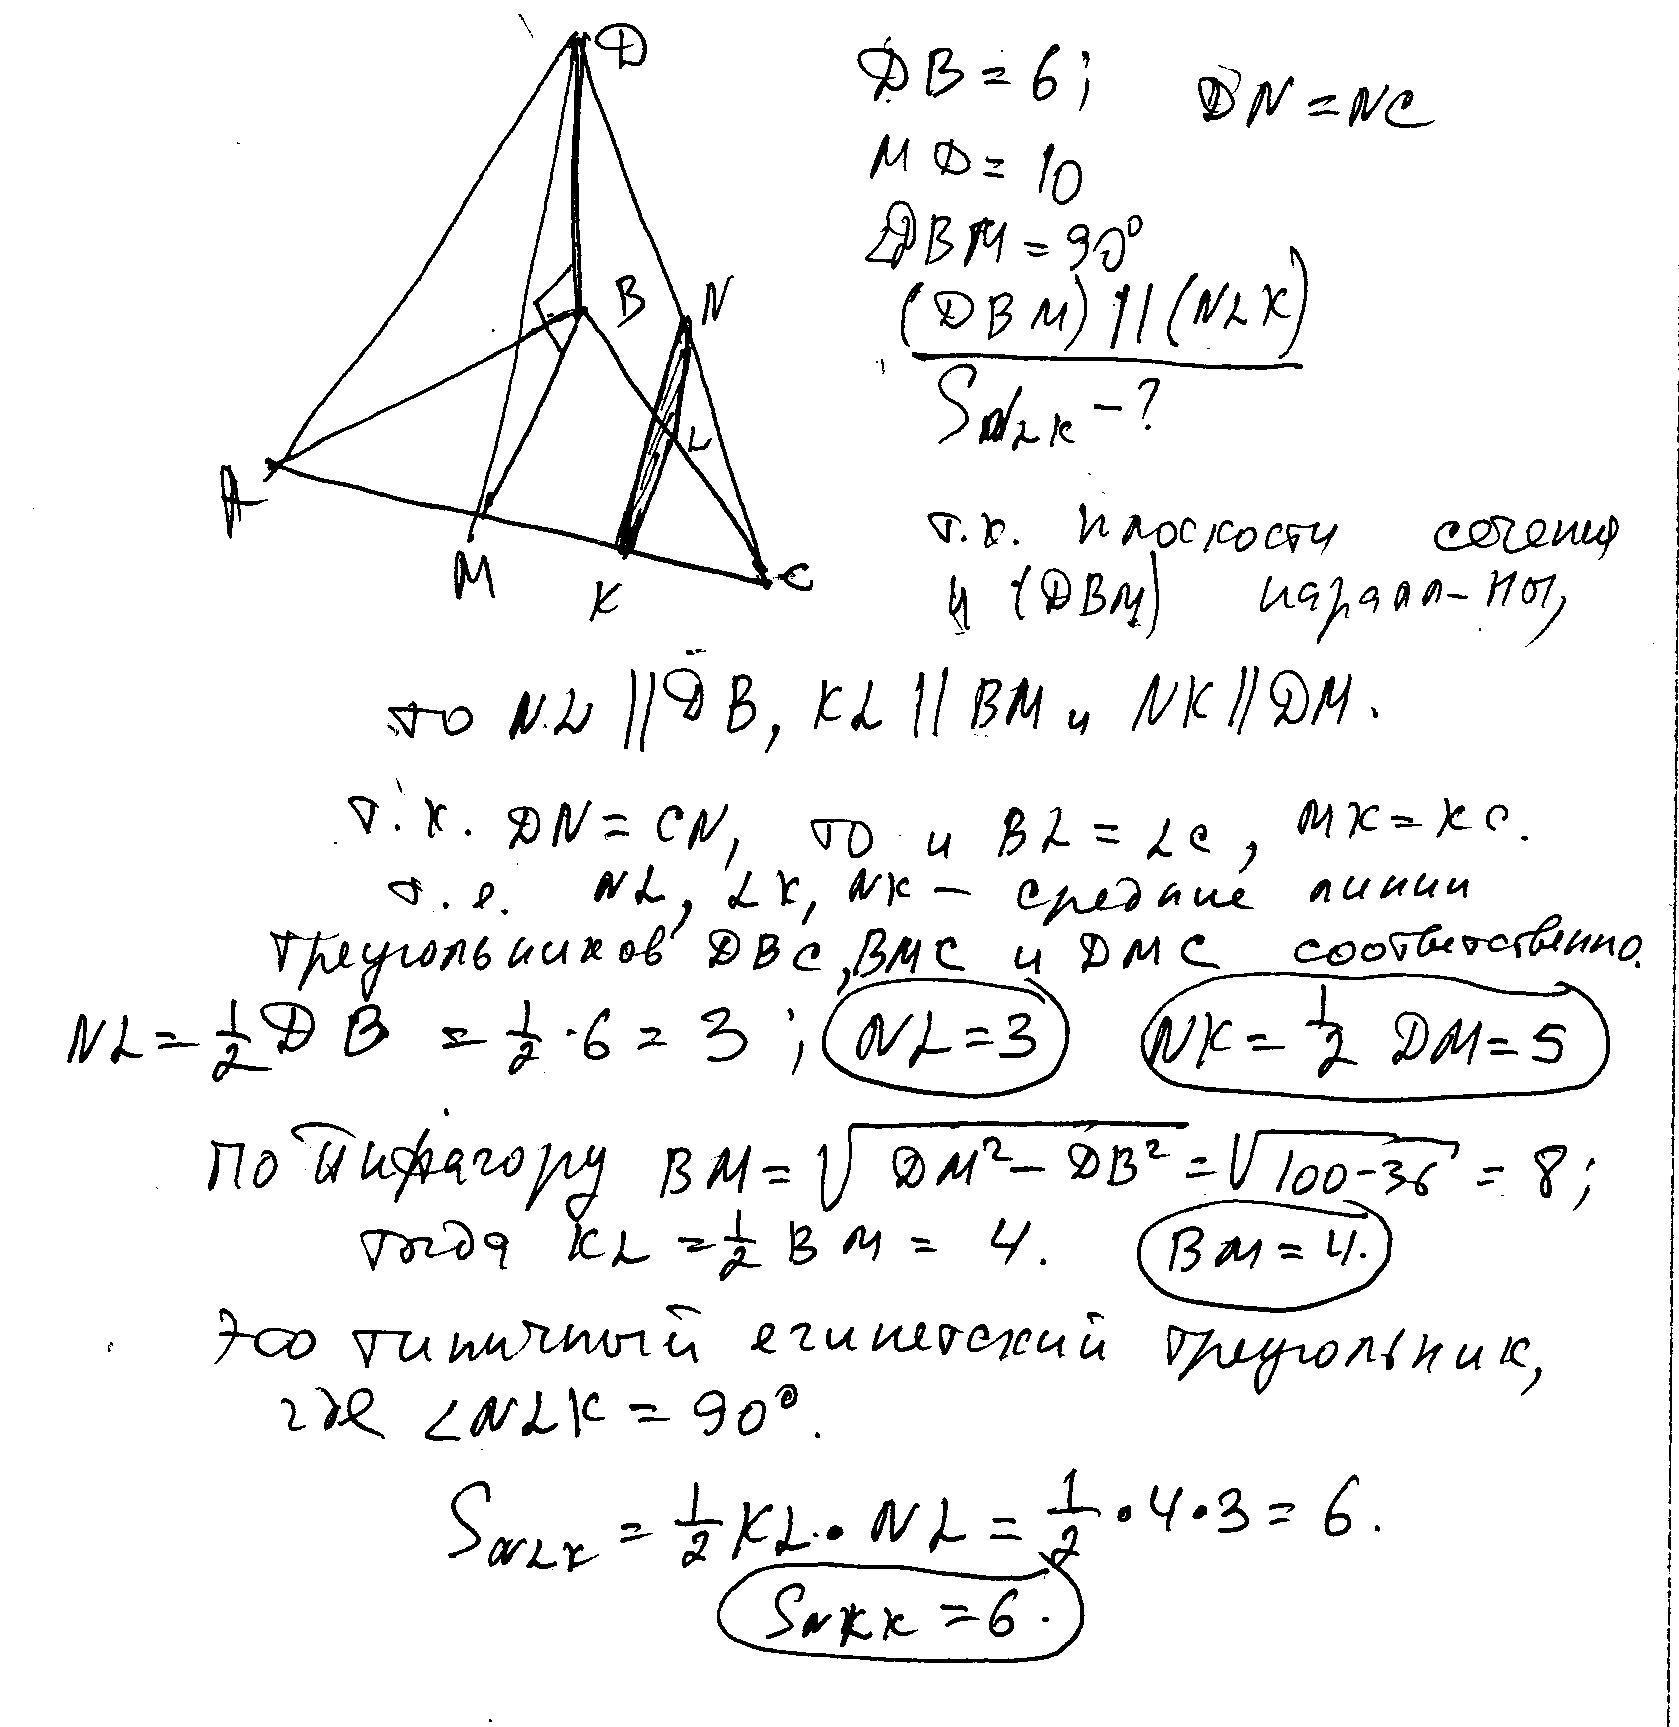 D
B
N
A
L
M
K
C
DB = 6;
DN = NC
MD = 10
∠DBM = 90°
(DBM) || (NLK)
S NLK - ?
т.к. плоскости сечения
и (DBM) паралл-ны,
то NL || DB, KL || BM и NK || DM.
т.к. DN = CN, то и BL = LC, MK = KC.
т.е. NL, LK, NK – средние линии
треугольников DBC, BMC и DMC соответственно.
NL = 1/2 DB = 1/2 · 6 = 3; NL = 3 NK = 1/2 DM = 5
По Пифагору BM = √DM² – DB² = √100-36 = 8;
тогда KL = 1/2 BM = 4. BM = 4.
Это типичный египетский треугольник,
где ∠NLK = 90°.
S NLK = 1/2 KL · NL = 1/2 · 4 · 3 = 6.
S NKK = 6.